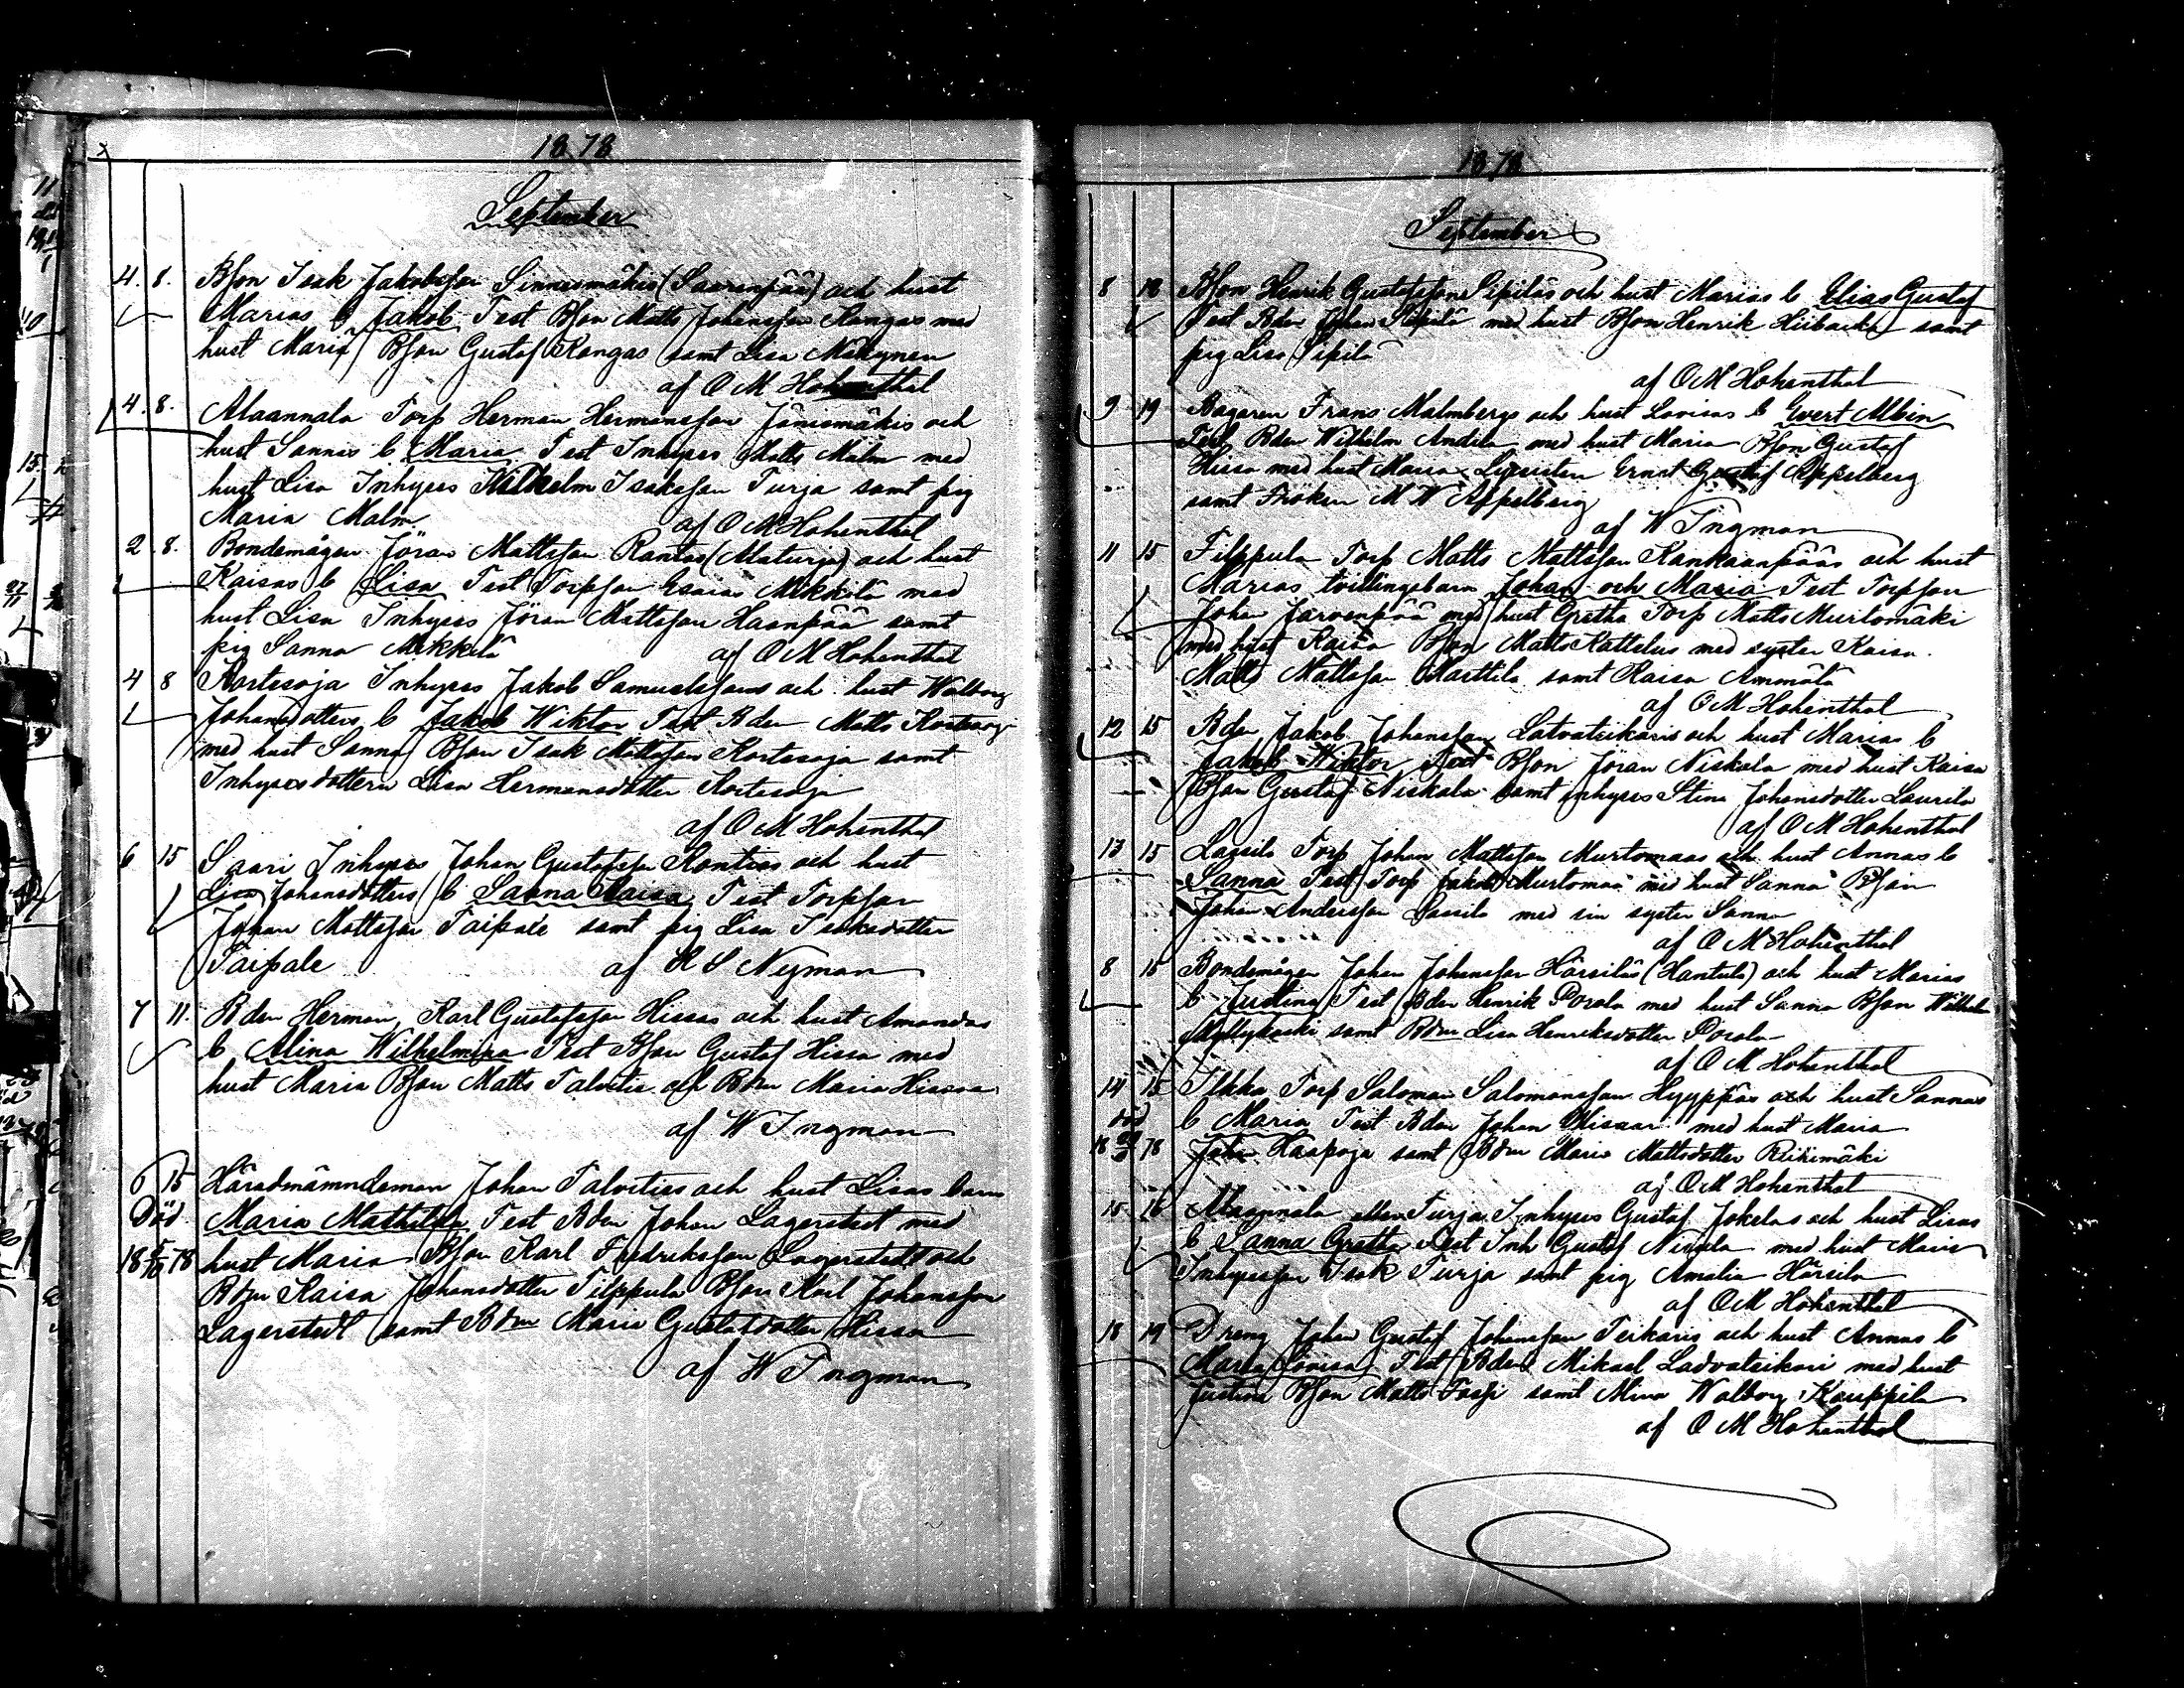 1878
September
4. 8. Bson Isak Jakobsson Sinnismäkis (Saarenpää) och hust
Marias b Jakob Test Bson Matts Johansson Kangas med
hust Maria Bson Gustaf Kangas samt Lisa Mäkynen
af O M Hohenthal
4. 8. Alaannala Torp Herman Hermansson Jänismäkis och
hust Sannas b Maria Test Inhyses Matts Malm med
hust Lisa Inhyses Wilhelm Isaksson Turja samt pig
Maria Malm af O M Hohenthal
2 8. Bondemågen Jöran Mattsson Rantas (Alaturja) och hust
Kaisas b Lisa Test Torpson Esaias Mikkilä med
hust Lisa Inhyses Jöran Mattsson Haanpää samt
pig Sanna Mikkilä af O M Hohenthal
4 8 Kortesoja Inhyses Jakob Samuelssons och hust Walborg
Johansdotters b Jakob Wiktor Test Bden Matts Kortesoj
med hust Sanna Bson Isak Mattsson Kortesoja samt
Inhysesdottern Lisa Hermansdotter Kortesoja
af O M Hohenthal
6 15 Saari Inhyses Johan Gustafsson Konttas och hust
Lisa Johansdotters b Sanna Kaisa Test Torpson
Johan Mattsson Taipale samt pig Lisa Isaksdotter
Taipale af K S Nyman
7 11. Bden Herman Karl Gustafsson Hissas och hust Amandas
b Alina Wilhelmina Test Bson Gustaf Hissa med
hust Maria Bson Matts Talvitie och Bdm Maria Hissa
af W Ingman
6 15 Häradsnämndeman Johan Talvities och hust Lisas barn
Död Maria Mathilda Test Bden Johan Lagerstedt med
18 5/10 78 hust Maria Bson Karl Fredriksson Lagerstedt och
Bdm Kaisa Johansdotter Filppula Bson Karl Johansson
Lagerstedt samt Bdm Maria Gustafsdotter Hissa
af W Ingman
1878
September
8 18 Bson Henrik Gustafsson Sipiläs och hust Marias b Elias Gustaf
Test Bden Johan Sipilä med hust Bson Henrik Hiibacka samt
pig Lisa Sipilä
af O M Hohenthal
9 19 Bagaren Frans Malmbergs och hust Lovisas b Evert Albin
Test Bden Wilhelm Andila med hust Maria Bson Gustaf
Hissa med hust Maria Lyceisten Ernst Gustaf Appelberg
samt Fröken M W Appelberg
af W Ingman
11 15 Filppula Torp Matts Mattsson Kankaanpääs och hust
Marias tvillingebarn Johan och Maria Test Torpson
Johan Jarvenpää med hust Gretha Torp Matts Murtomäki
med hust Kaisa Bson Matts Kattelus med syster Kaisa
Matts Mattsson Marttila samt Kaisa Ammälä
af O M Hohenthal
12 15 Bden Jakob Johansson Latvateikaris och hust Marias b
Jakob Wiktor Test Bson Jöran Niskala med hust Kaisa
Bson Gustaf Niskala samt inhyses Stina Johansdotter Laurila
af O M Hohenthal
13 15 Lassila Torp Johan Mattsson Murtomaas och hust Annas b
Sanna Test Torp Jakob Murtomaa med hust Sanna Bson
Johan Andersson Lassila med sin syster Sanna
af O M Hohenthal
8 15 Bondemågen Johan Johansson Härsiläs (Hantula) och hust Marias
b Justina Test Bden Henrik Porola med hust Sanna Bson Wilhelm
Myllykoski samt Bdm Lisa Henriksdotter Porola
af O M Hohenthal
14 15 Ilkka Torp Saloman Salomonsson Hyyppäs och hust Sannas
död b Maria Test Bden Johan Missaar med hust Maria
18 78 Johan Haapoja samt Bdm Maria Mattsdotter Riihimäki
af O M Hohenthal
15 16 Alaannala eller Turja Inhyses Gustaf Jokelas och hust Lisas
b Sanna Gretha Test Inh Gustaf Nirula med hust Maria
Inhysesson Isak Turja samt pig Amalia Härsila
af O M Hohenthal
18 19 Dreng Johan Gustaf Johansson Teikaris och hust Annas b
Maria Lovisa Test Bden Mikael Ladvateikari med hust
Justina Bson Matts Passi samt Mina Walborg Kauppila
af O M Hohenthal